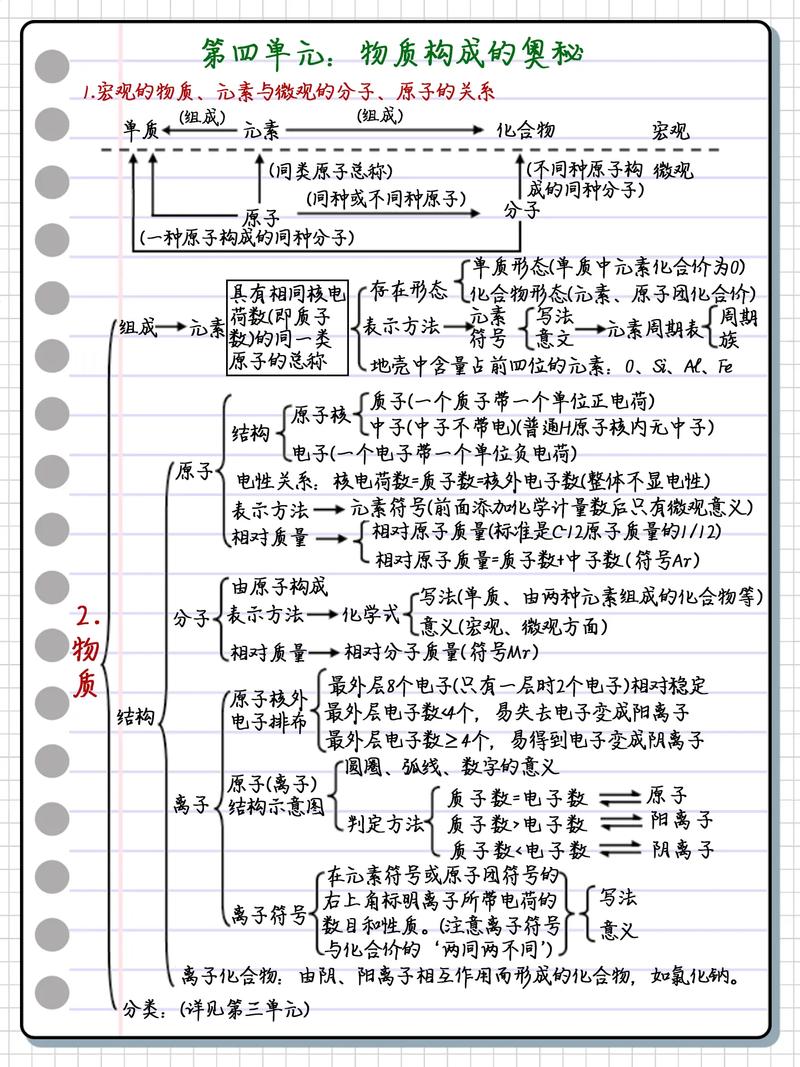 第四单元：物质构成的奥秘
1.宏观的物质、元素与微观的分子、原子的关系
(组成) (组成)
单质 元素 化合物 宏观
(同类原子总称) (不同种原子构成的同种分子) 微观
(同种或不同种原子)
原子 分子
(一种原子构成的同种分子)
2.物质
组成 元素
具有相同核电
荷数(即质子
数)的同一类
原子的总称
存在形态
单质形态(单质中元素化合价为0)
化合物形态(元素、原子团化合价)
表示方法 元素符号 写法 意文 元素周期表 周期 族
地壳中含量占前四位的元素：O、Si、Al、Fe
结构
原子
结构
原子核
质子(一个质子带一个单位正电荷)
中子(中子不带电)(普通H原子核内无中子)
电子(一个电子带一个单位负电荷)
电性关系：核电荷数=质子数=核外电子数(整体不显电性)
表示方法 元素符号(前面添加化学计量数后只有微观意义)
相对质量
相对原子质量(标准是C-12原子质量的1/12)
相对原子质量=质子数+中子数(符号Ar)
分子
由原子构成
表示方法 化学式
写法(单质、由两种元素组成的化合物等)
意义(宏观、微观方面)
相对质量 相对分子质量(符号Mr)
离子
原子核外
电子排布
最外层8个电子(只有一层时2个电子)相对稳定
最外层电子数<4个，易失去电子变成阳离子
最外层电子数≥4个，易得到电子变成阴离子
原子(离子)
结构示意图
圆圈、弧线、数字的意义
判定方法
质子数=电子数 原子
质子数>电子数 阳离子
质子数<电子数 阴离子
离子符号
在元素符号或原子团符号的
右上角标明离子所带电荷的
数目和性质。(注意离子符号
与化合价的‘两同两不同’)
写法
意义
离子化合物：由阴、阳离子相互作用而形成的化合物，如氯化钠。
分类：(详见第三单元)